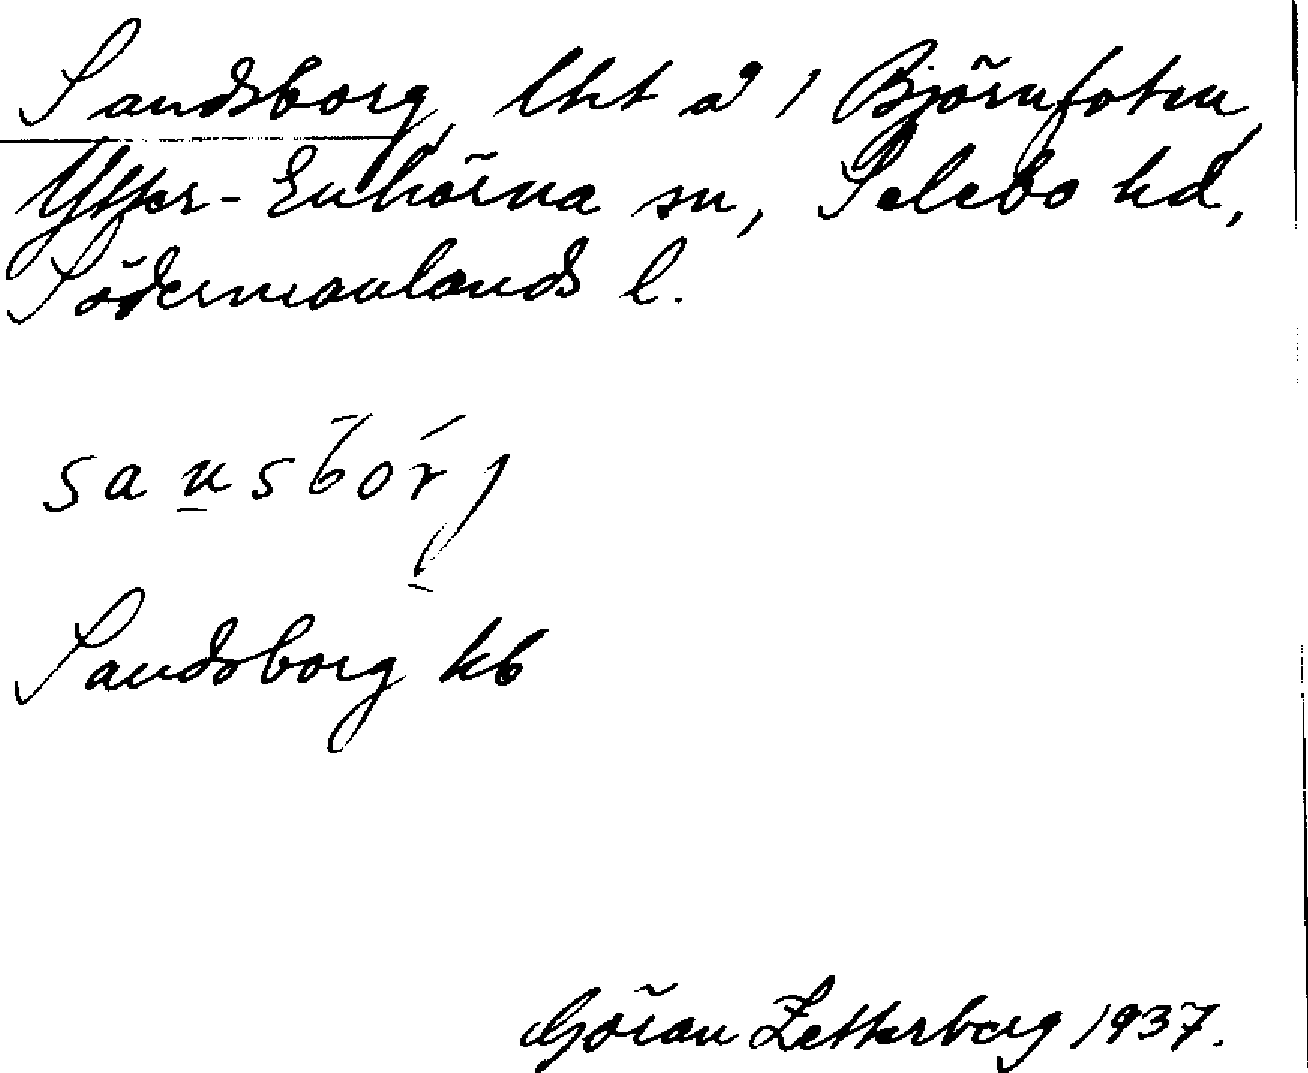 Sandsborg, lht å 1 Björnfoten,
Ytter-Enhörna sn, Selebo hd,
Södermanlands l.
Sandsborg kb
Göran Zetterberg 1937.